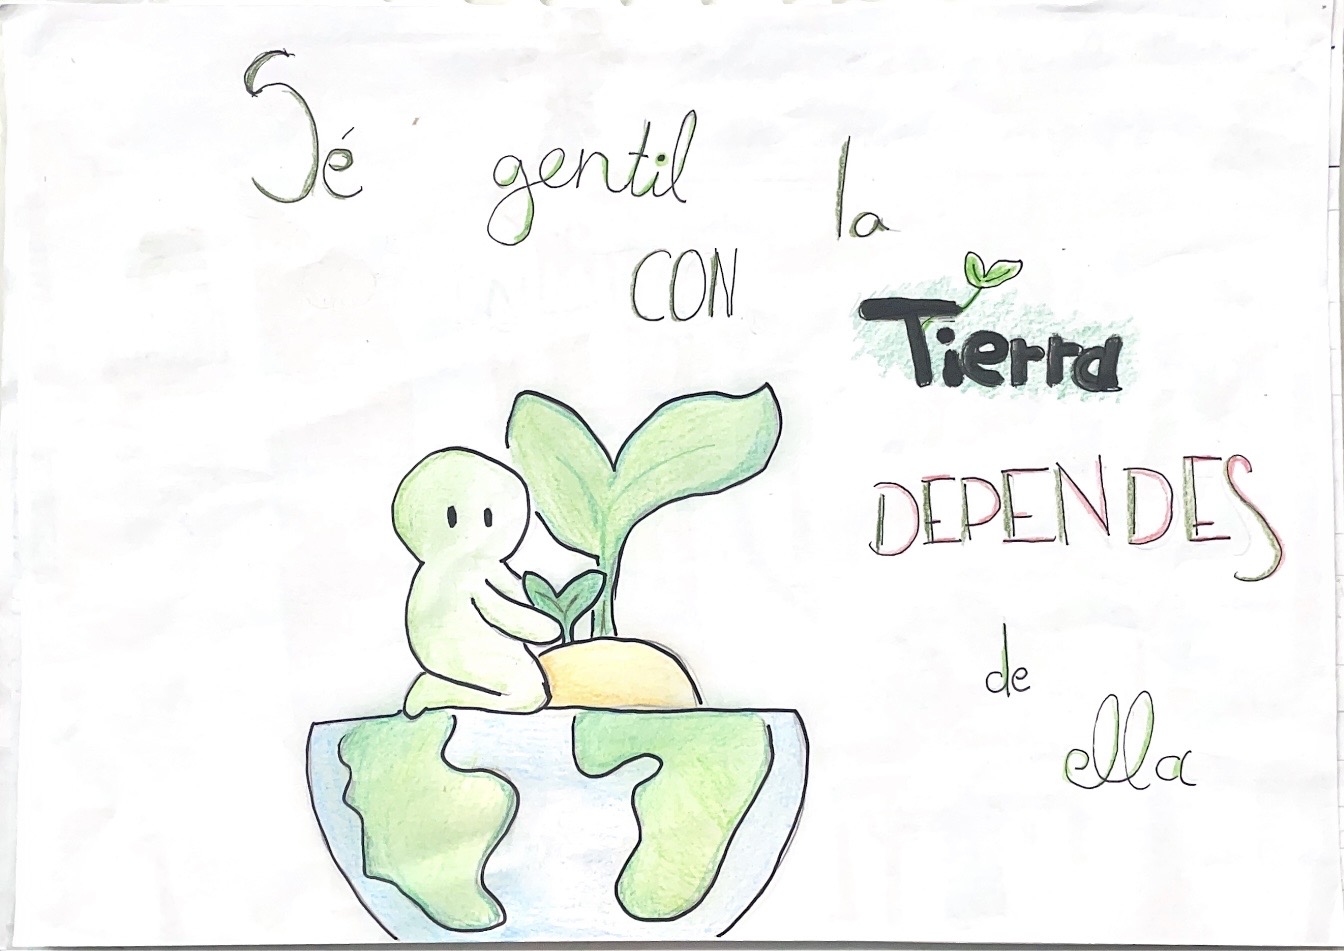 Sé gentil
CON la
Tierra
DEPENDES
de
ella